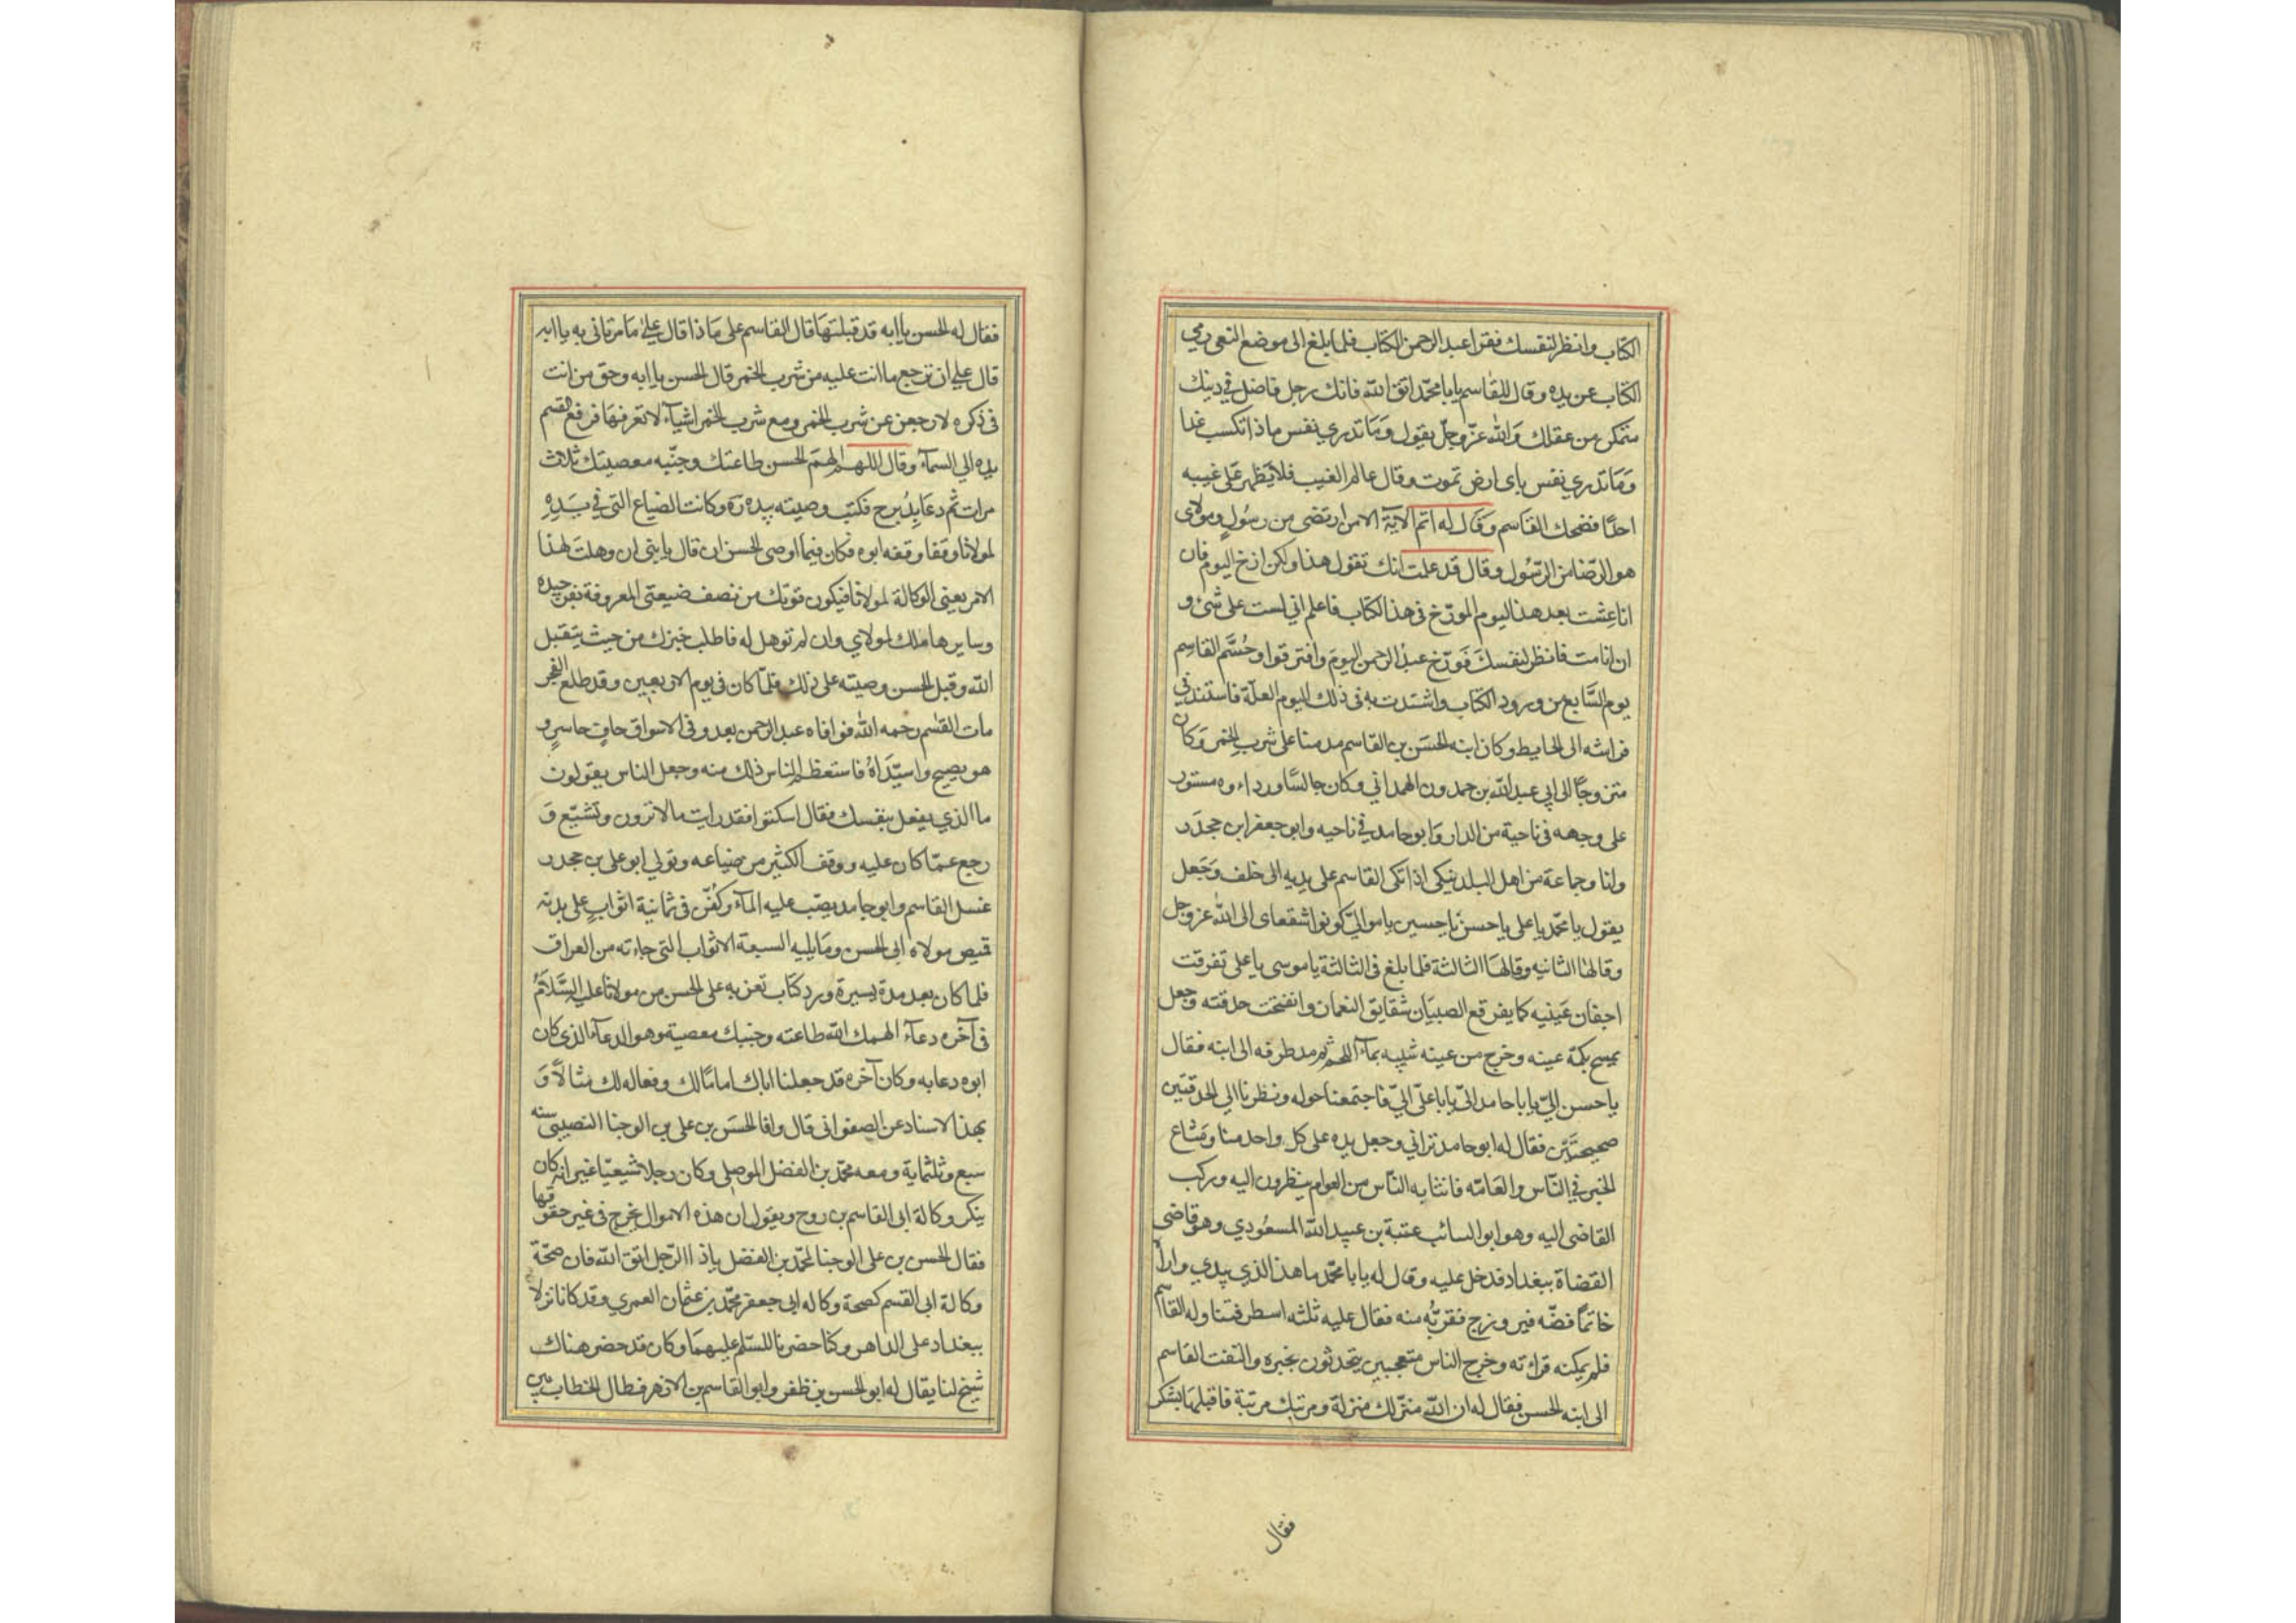 الكتاب وانظر لنفسك فقرا عبد الرحمن الكتاب فلما بلغ الى موضع النعي رمي
الكتاب عن يده وقال للقاسم يا با محمد اتق الله فانك رجل فاضل في دينك
متمكن من عقلك والله عز وجل يقول وما تدري نفس ماذا تكسب غدا
وما تدري نفس باى ارض تموت وقال عالم الغيب فلا يظهر على غيبه
احدا فضحك القاسم وقال له اتم الآية الا من ارتضى من رسول ومولاى
هو الرضا من الرسول وقال قد علمت انك تقول هذا ولكن ارخ اليوم فان
انا عشت بعد هذا اليوم المورخ فى هذا الكتاب فاعلم اني لست على شئ و
ان انا مت فانظر لنفسك فورخ عبد الرحمن اليوم وافترقوا وحم القاسم
يوم السابع من ورود الكتاب واشتدت به فى ذلك اليوم العلة فاستند في
فراشه الى الحايط وكان ابنه الحسن بن القاسم مدمنا على شرب الخمر وكان
متزوجا الى ابي عبد الله بن حمدون الهمداني وكان جالسا ورداءه مستور
على وجهه فى ناحية من الدار وابو حامد في ناحيه وابو جعفر ابن جحدر
وانا وجماعة من اهل البلد نبكى اذ اتكى القاسم على يديه الى خلف وجعل
يقول يا محمد يا على يا حسن يا حسين يا موالي كونوا شفعاى الى الله عز وجل
وقالها الثانيه وقالها الثالثة فلما بلغ فى الثالثة يا موسى يا على تفرقت
اجفان عينيه كما يفرقع الصبيان شقايق النعمان وانتفخت حدقته وجعل
يمسح بكمه عينه وخرج من عينه شبيه بمآء اللحم ثم مد طرفه الى ابنه فقال
يا حسن الي يا با حامد الي يا با على الي فاجتمعنا حوله ونظرنا الى الحدقتين
صحيحتين فقال له ابو حامد تراني وجعل يده على كل واحد منا وشاع
الخبر في الناس والعامه فانتابه الناس من العوام ينظرون اليه وركب
القاضى اليه وهو ابو السائب عتبة بن عبيد الله المسعودي وهو قاضى
القضاة ببغداد فدخل عليه وقال له يا با محمد ما هذا الذي بيدي واراه
خاتما فضه فيروزج فقربه منه فقال عليه ثلثه اسطر فتناوله القاسم
فلم يمكنه قراته وخرج الناس متعجبين يتحدثون بخبره والتفت القاسم
الى ابنه الحسن فقال له ان الله منزلك منزلة ومرتبك مرتبة فاقبلها بشكر
فقال
فقال له الحسن يا ابه قد قبلتها قال القاسم على ماذا قال على ما مرتاني به يا ابه
قال على ان ترجع ما انت عليه من شرب الخمر قال الحسن يا ابه وحق من انت
فى ذكره لارجعن عن شرب الخمر ومع شرب الخمر اشيآء لا تعرفها فرفع القسم
يده الى السمآء وقال اللهم الهم الحسن طاعتك وجنبه معصيتك ثلاث
مرات ثم دعا بدرج فكتب وصيته بيده ره وكانت الضياع التى في يده
لمولانا وقفا وقفه ابوه فكان فيما اوصى الحسن ان قال يا بنى ان وهلت لهذا
الامر يعنى الوكالة لمولانا فيكون قوتك من نصف ضيعتى المعروفة بفرجيده
وسايرها ملك لمولاي وان لم توهل له فاطلب خيرك من حيث يتقبل
الله وقبل الحسن وصيته على ذلك فلما كان فى يوم الاربعين وقد طلع الفجر
مات القسم رحمه الله فوافاه عبد الرحمن يعدو فى الاسواق حاف حاسر و
هو يصيح واسيداه فاستعظم الناس ذلك منه وجعل الناس يقولون
ما الذي يفعل بنفسك فقال اسكتوا فقد رايت ما لا ترون وتشيع و
رجع عما كان عليه ووقف الكثير من ضياعه وتولي ابو على بن جحدر
غسل القاسم وابو حامد يصب عليه المآء وكفن فى ثمانية اثواب على بدنه
قميص مولاه ابى الحسن وما يليه السبعة الاثواب التى جاءته من العراق
فلما كان بعد مدة يسيرة ورد كتاب تعزيه على الحسن من مولانا عليه السلام
فى آخره دعآء الهمك الله طاعته وجنبك معصية وهو الدعآء الذى كان
ابوه دعا به وكان آخره قد جعلنا اباك اماما لك وفعاله لك مثالا و
بهذا الاسناد عن الصفوانى قال وافا الحسن بن على بن الوجنا النصيبى سنه
سبع وثلثماية ومعه محمد بن الفضل الموصلى وكان رجلا شيعيا غير انه كان
ينكر وكالة ابى القاسم بن روح ويقول ان هذه الاموال تخرج فى غير حقوقها
فقال الحسن بن على الوجنا لمحمد بن الفضل يا ذا الرجل اتق الله فان صحة
وكالة ابى القسم كصحة وكاله ابى جعفر محمد بن عثمان العمري وقد كانا نزلا
ببغداد على الزاهر وكنا حضرنا للسلم عليهما وكان قد حضر هناك
شيخ لنا يقال له ابو الحسن بن ظفر وابو القاسم بن الازهر فطال الخطاب بين